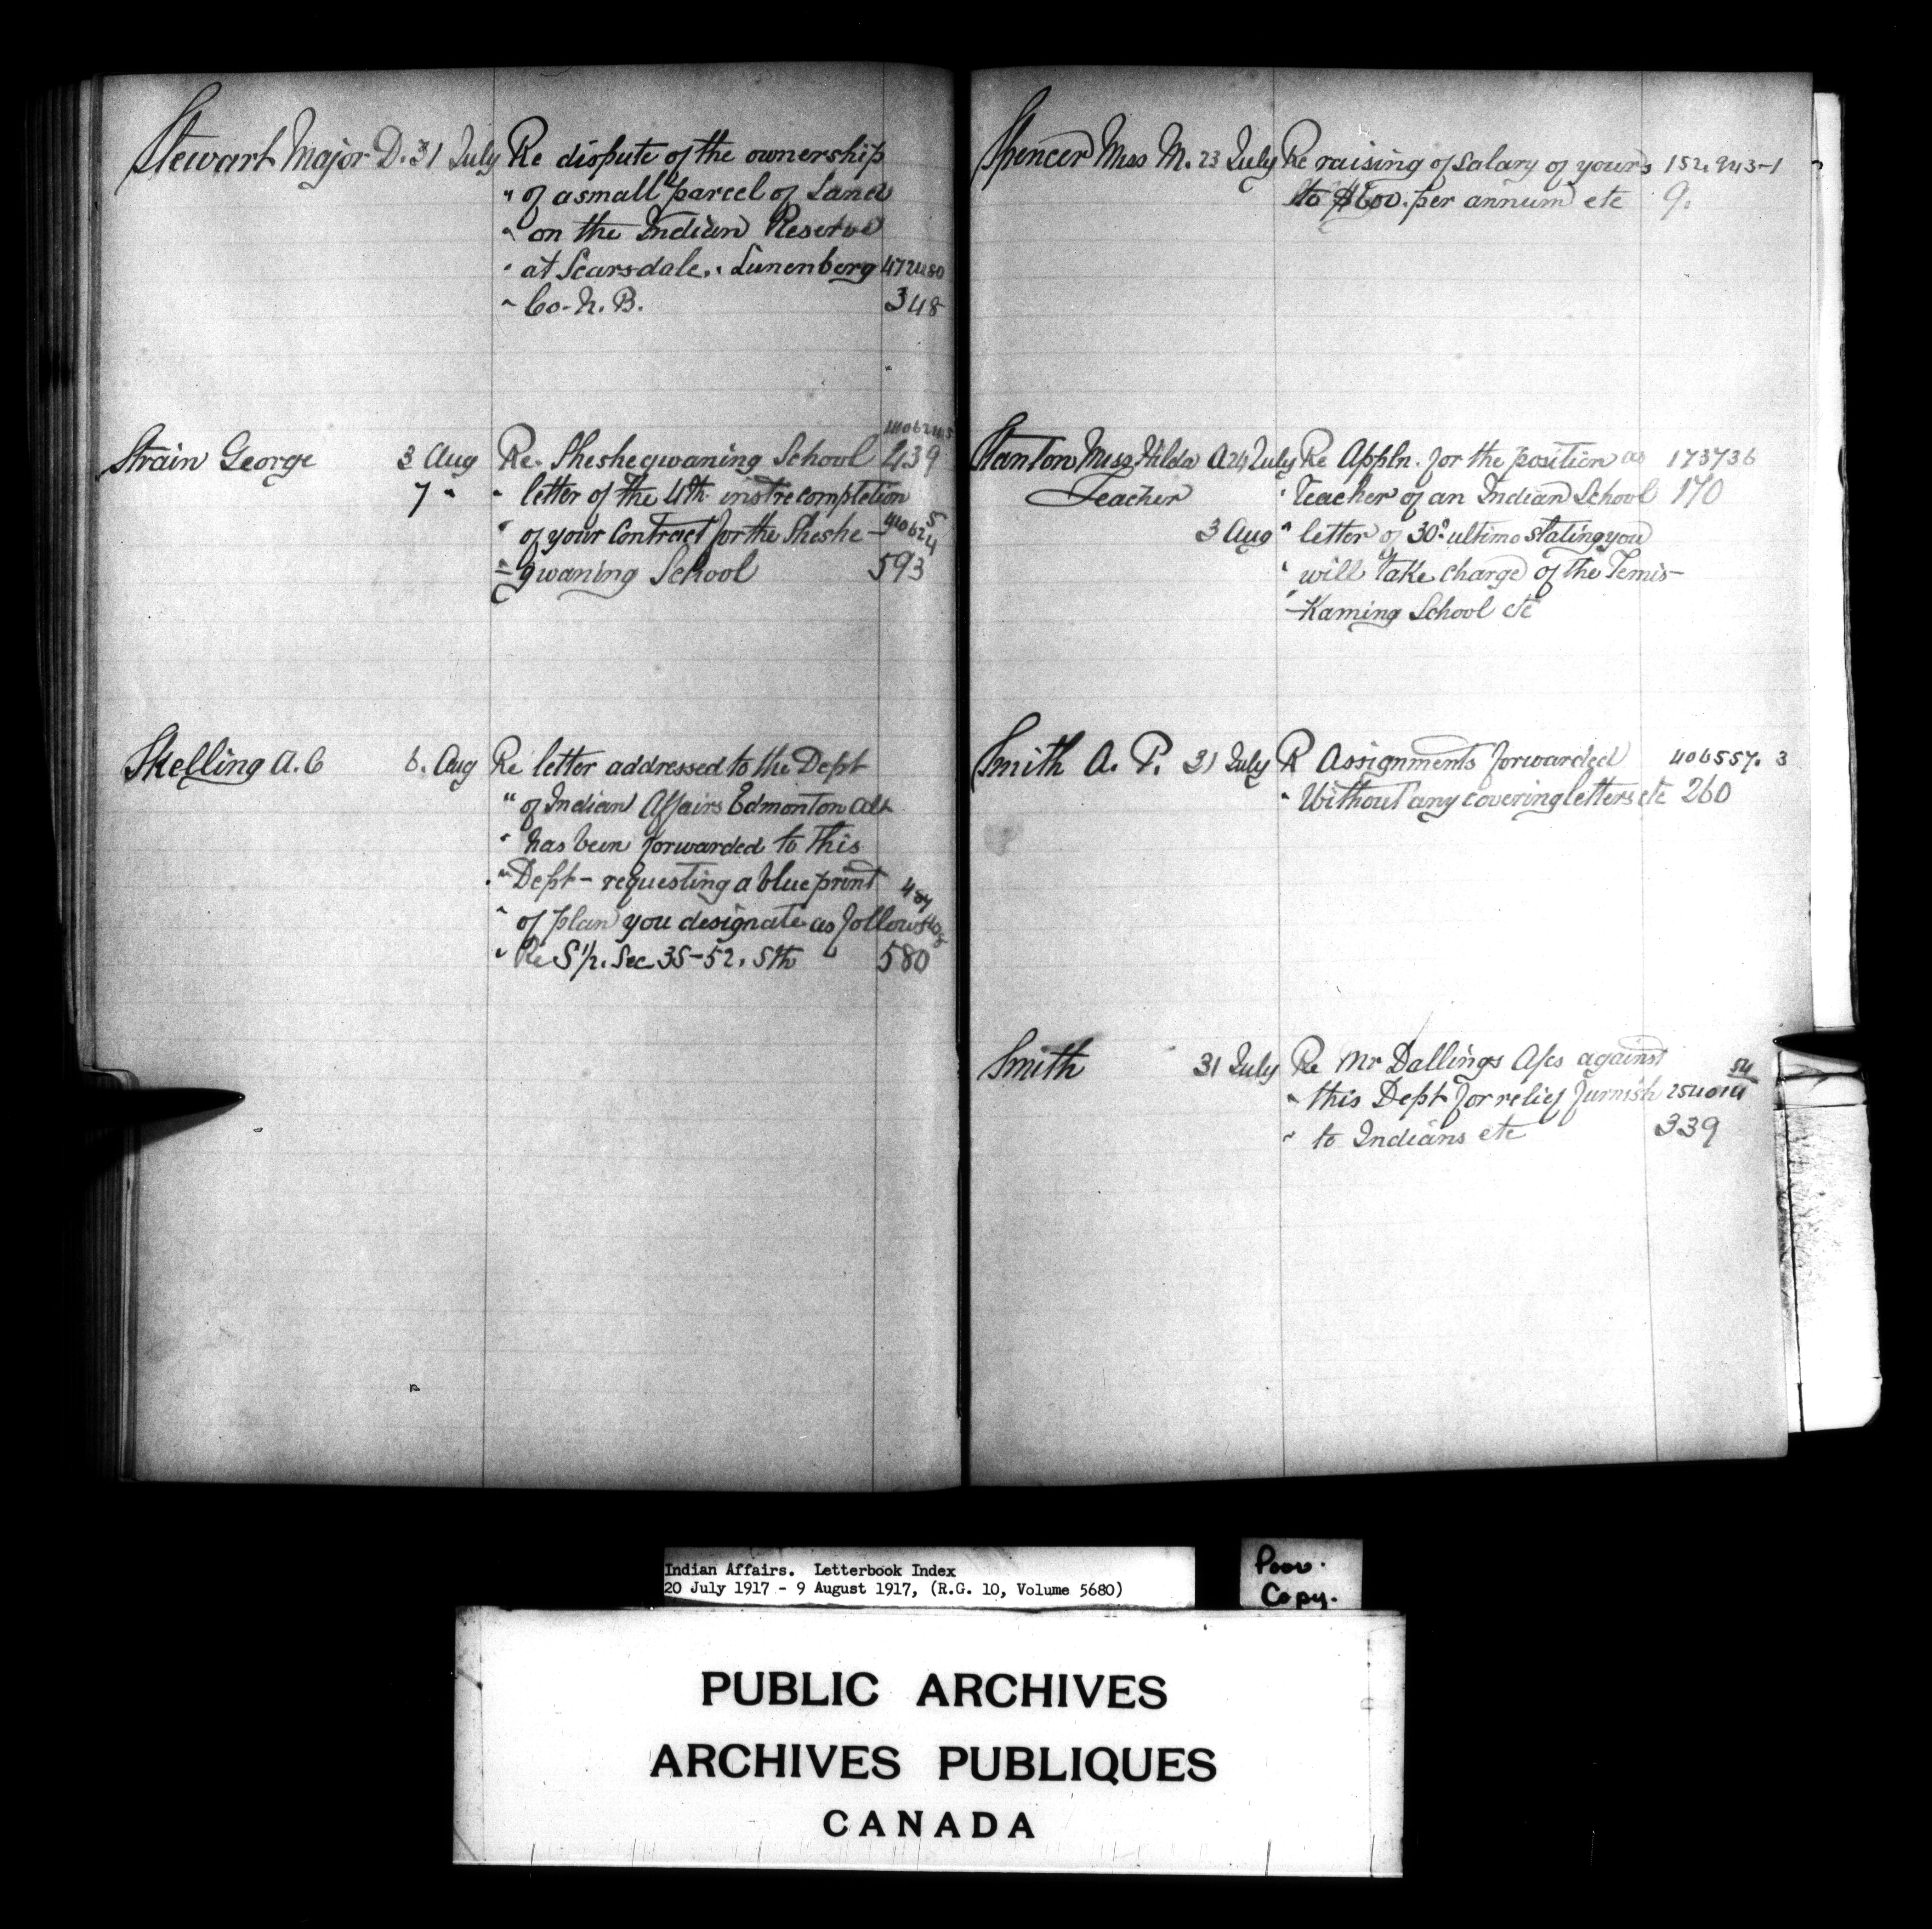 Stewart Major D. 31 July Re dispute of the ownership
" of a small parcel of Land
" on the Indian Reserve
" at Scarsdale, Lunenberg 472480
" Co. N. B. 348
4406245
Strain George 3 Aug Re Sheshegwaning School 439
7 " " letter of the 4th inst re completion
" of your Contract for the Sheshe- 
" gwaning School 593
Skelling A. C 6. Aug Re letter addressed to the Dept
" of Indian Affairs Edmonton Alt
" has been forwarded to this
" Dept - requesting a blue print
" of plan you designate as follows
" Re S 1/2. Sec 35-52. 5th 580
Spencer Miss M. 23 July Re raising of Salary of yours 152,943-1
to $600. per annum etc 9.
Stanton Miss Hilda A 24 July Re Appln. for the position as 173736
Teacher " Teacher of an Indian School 170
3 Aug " letter of 30° ultimo stating you
" will take charge of the Temis-
" -Kaming School etc
Smith A. P. 31 July R Assignments forwarded 406557. 3
" Without any covering letters etc 260
Smith 31 July Re Mr Dallings A/cs against
" this Dept for relief furnish 254014
" to Indians etc 339
Indian Affairs. Letterbook Index
20 July 1917 - 9 August 1917, (R.G. 10, Volume 5680)
Poor.
Copy.
PUBLIC ARCHIVES
ARCHIVES PUBLIQUES
CANADA